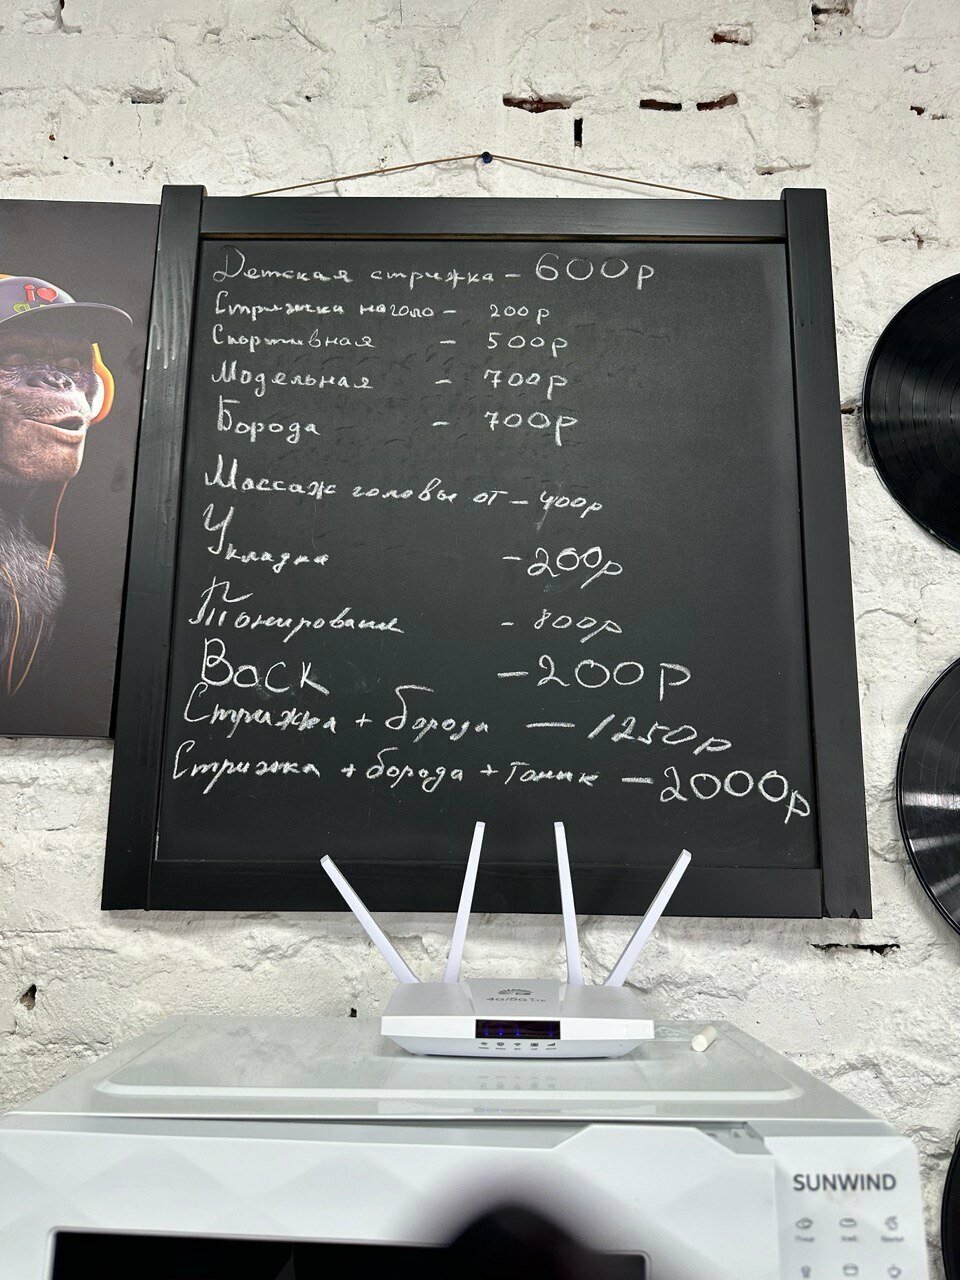 Детская стрижка - 600р
Стрижка наголо - 200р
Спортивная - 500р
Модельная - 700р
Борода - 700р
Массаж головы от - 400р
Укладка - 200р
Тонирование - 800р
Воск - 200р
Стрижка + Борода - 1250р
Стрижка + борода + Тоник - 2000р
4G/5G
SUNWIND